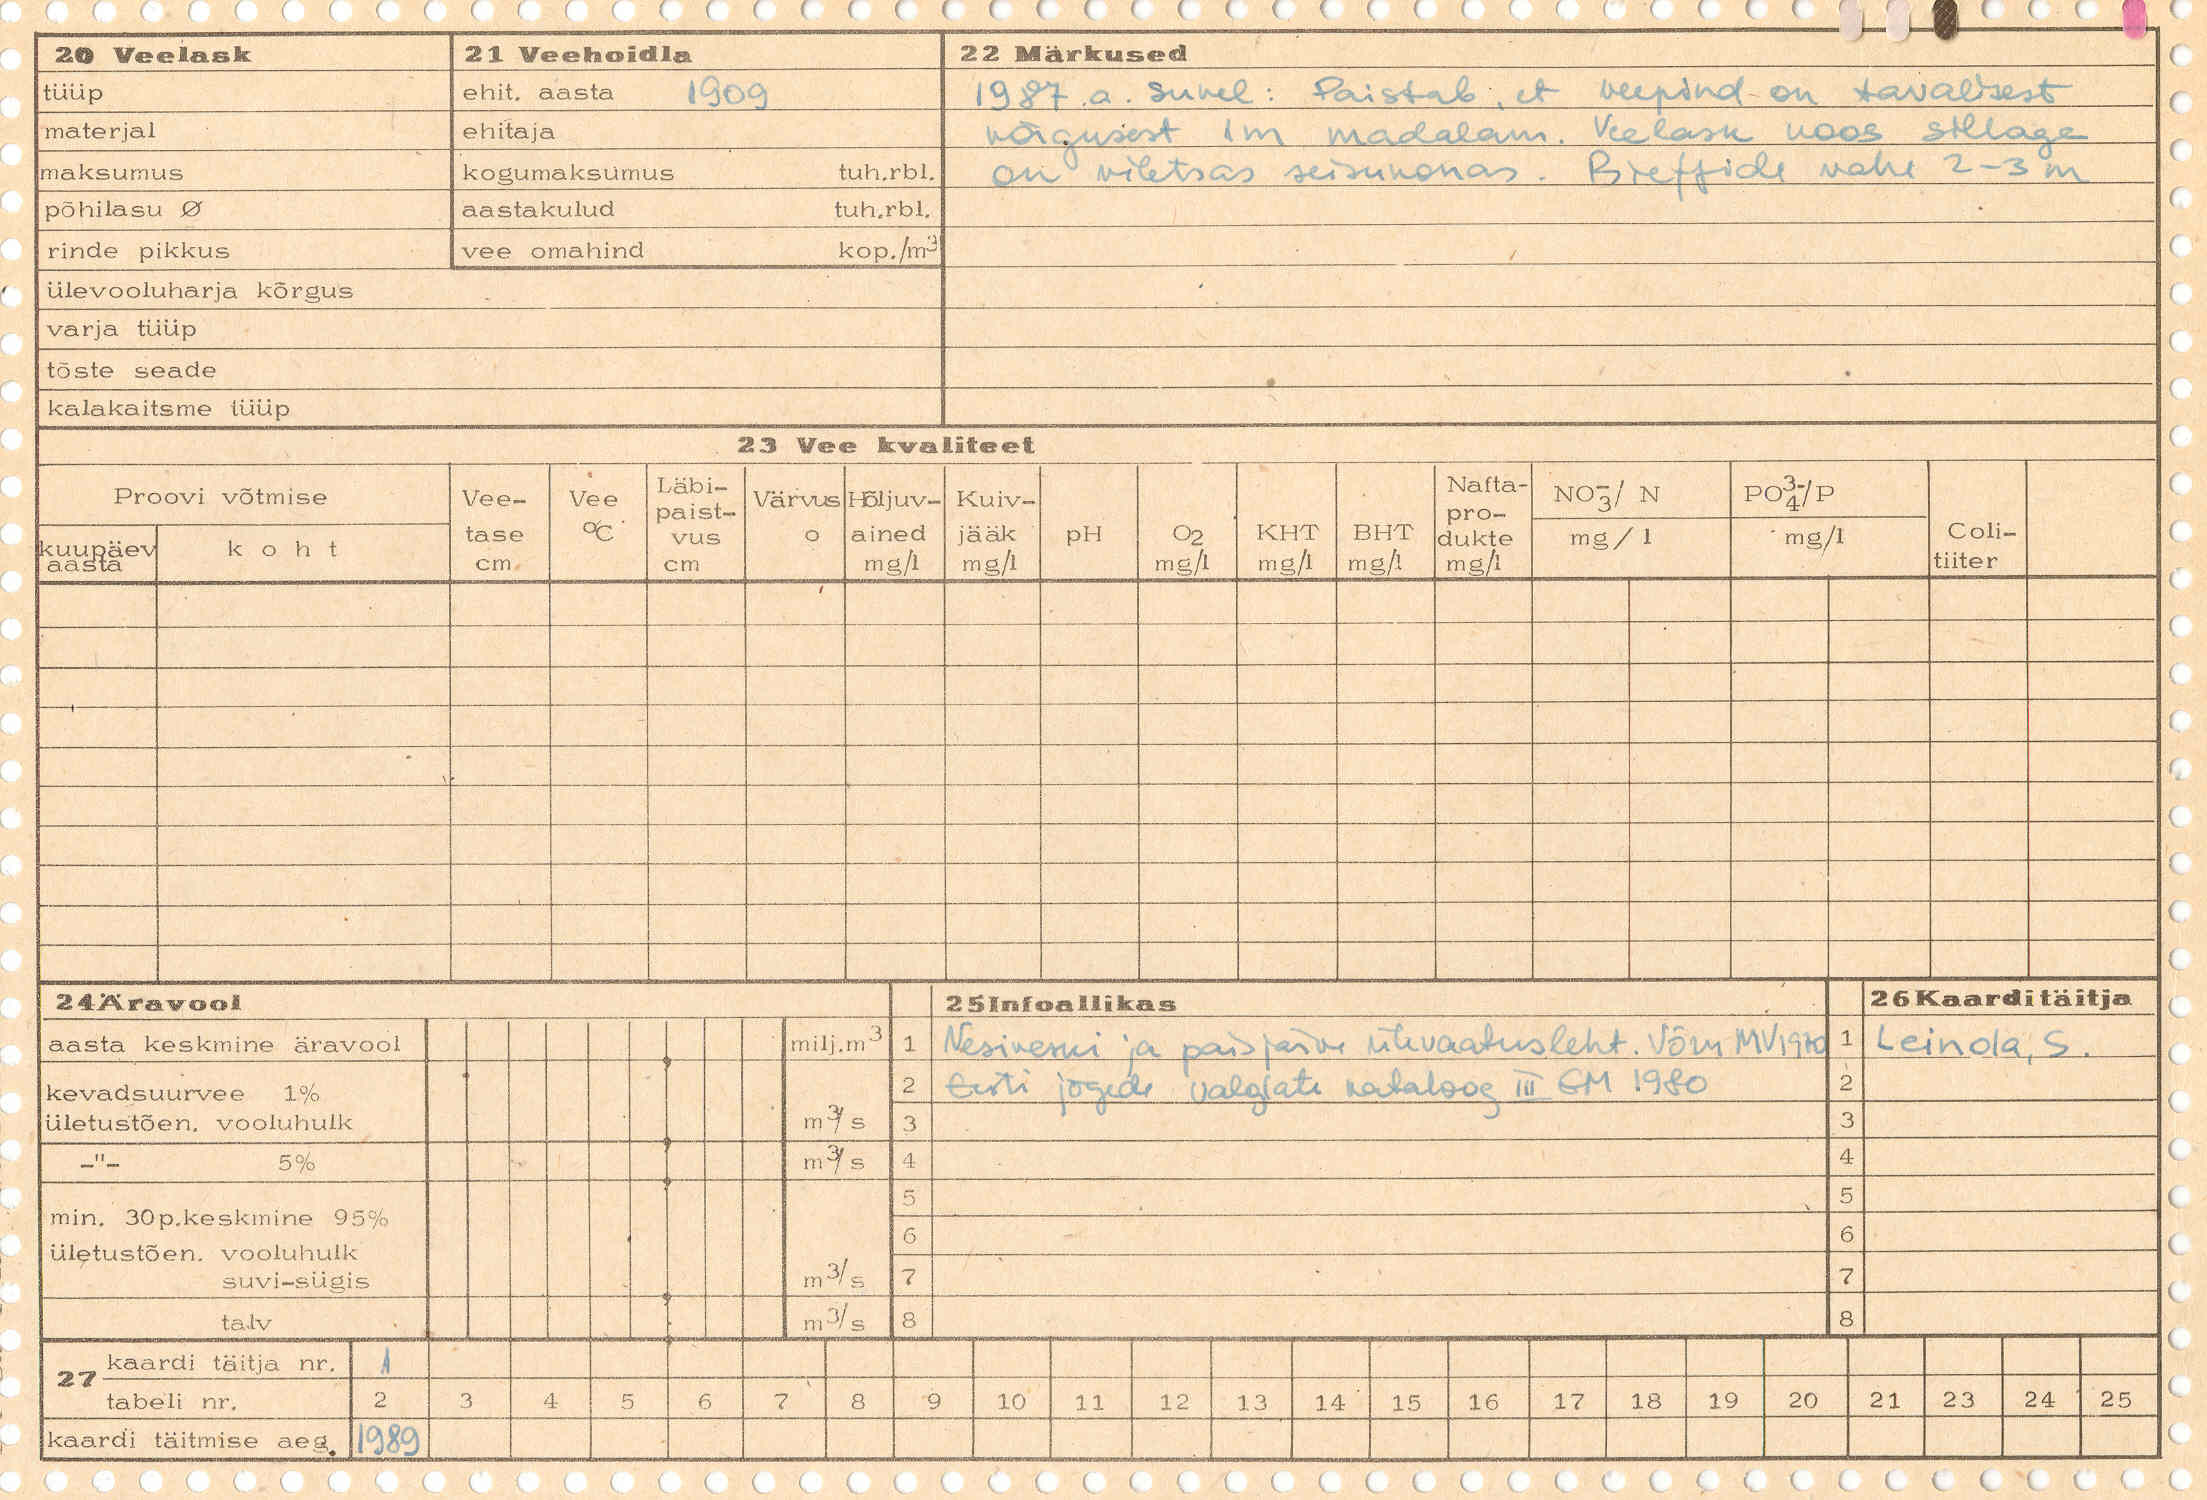 20 Veelask
tüüp
materjal
maksumus
põhilasu Ø
rinde pikkus
ülevooluharja kõrgus
varja tüüp
tõste seade
kalakaitsme tüüp
21 Veehoidla
ehit. aasta 1909
ehitaja
kogumaksumus tuh.rbl.
aastakulud tuh.rbl.
vee omahind kop./m³
22 Märkused
1987.a. suvel: Paistab, et veepind on tavalisest
kõrgusest 1m madalam. Veelask koos sillaga
on viletsas seisukorras. Bieffide vahe 2-3 m
23 Vee kvaliteet
Proovi võtmise
kuupäev
aasta
k o h t
Vee-
tase
cm
Vee
°C
Läbi-
paist-
vus
cm
Värvus
o
Hõljuv-
ained
mg/l
Kuiv-
jääk
mg/l
pH
O₂
mg/l
KHT
mg/l
BHT
mg/l
Nafta-
pro-
dukte
mg/l
NO₃⁻/ N
mg/l
PO₄³⁻/P
mg/l
Coli-
tiiter
24 Äravool
aasta keskmine äravool milj.m³
kevadsuurvee 1%
ületustõen. vooluhulk m³/s
-"- 5% m³/s
min. 30p.keskmine 95%
ületustõen. vooluhulk
suvi-sügis m³/s
talv m³/s
25 Infoallikas
1 Vesiveski ja paisjärve ülevaatusleht. Võru MV 1970
2 Eesti jõgede valglate kataloog III EM 1980
3
4
5
6
7
8
26 Kaarditäitja
1 Leinola, S.
2
3
4
5
6
7
8
27 kaardi täitja nr. 1
tabeli nr. 2 3 4 5 6 7 8 9 10 11 12 13 14 15 16 17 18 19 20 21 23 24 25
kaardi täitmise aeg. 1989